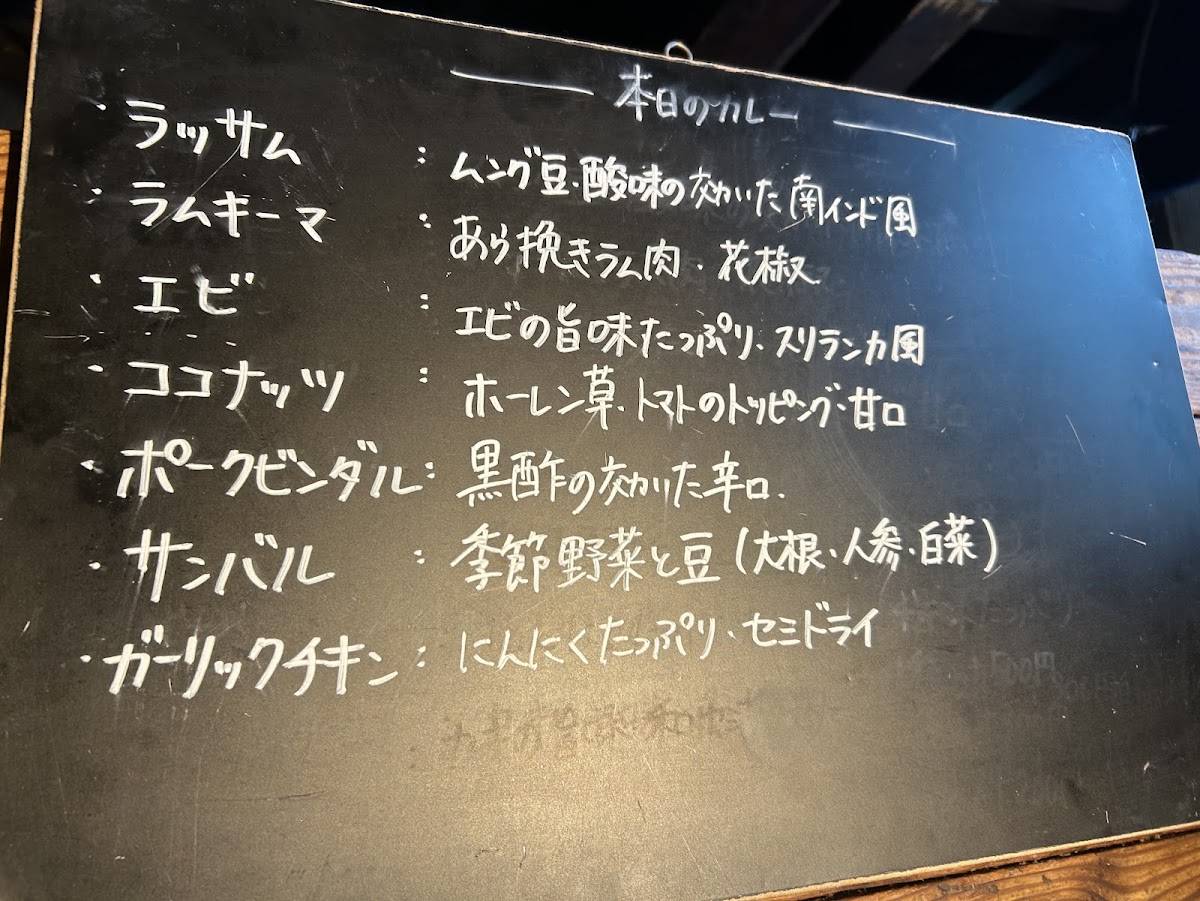 本日のカレー
・ラッサム : ムング豆・酸味の効いた南インド風
・ラムキーマ : あら挽きラム肉・花椒
・エビ : エビの旨味たっぷり・スリランカ風
・ココナッツ : ホーレン草・トマトのトッピング・甘口
・ポークビンダル : 黒酢の効いた辛口.
・サンバル : 季節野菜と豆(大根・人参・白菜)
・ガーリックチキン : にんにくたっぷり・セミドライ